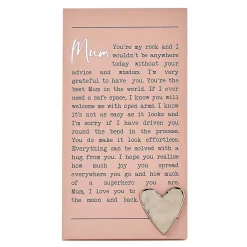 Mum, You're my rock and I
wouldn't be anywhere
today without your
advice and wisdom. I'm very
grateful to have you. You're the
best Mum in the world. If I ever
need a safe space, I know you will
welcome me with open arms. I know
it's not as easy as it looks and
I'm sorry if I have driven you
round the bend in the process.
You do make it look effortless.
Everything can be solved with a
hug from you. I hope you realise
how much joy you spread
everywhere you go and how much
of a superhero you are.
Mum, I love you to
the moon and back.